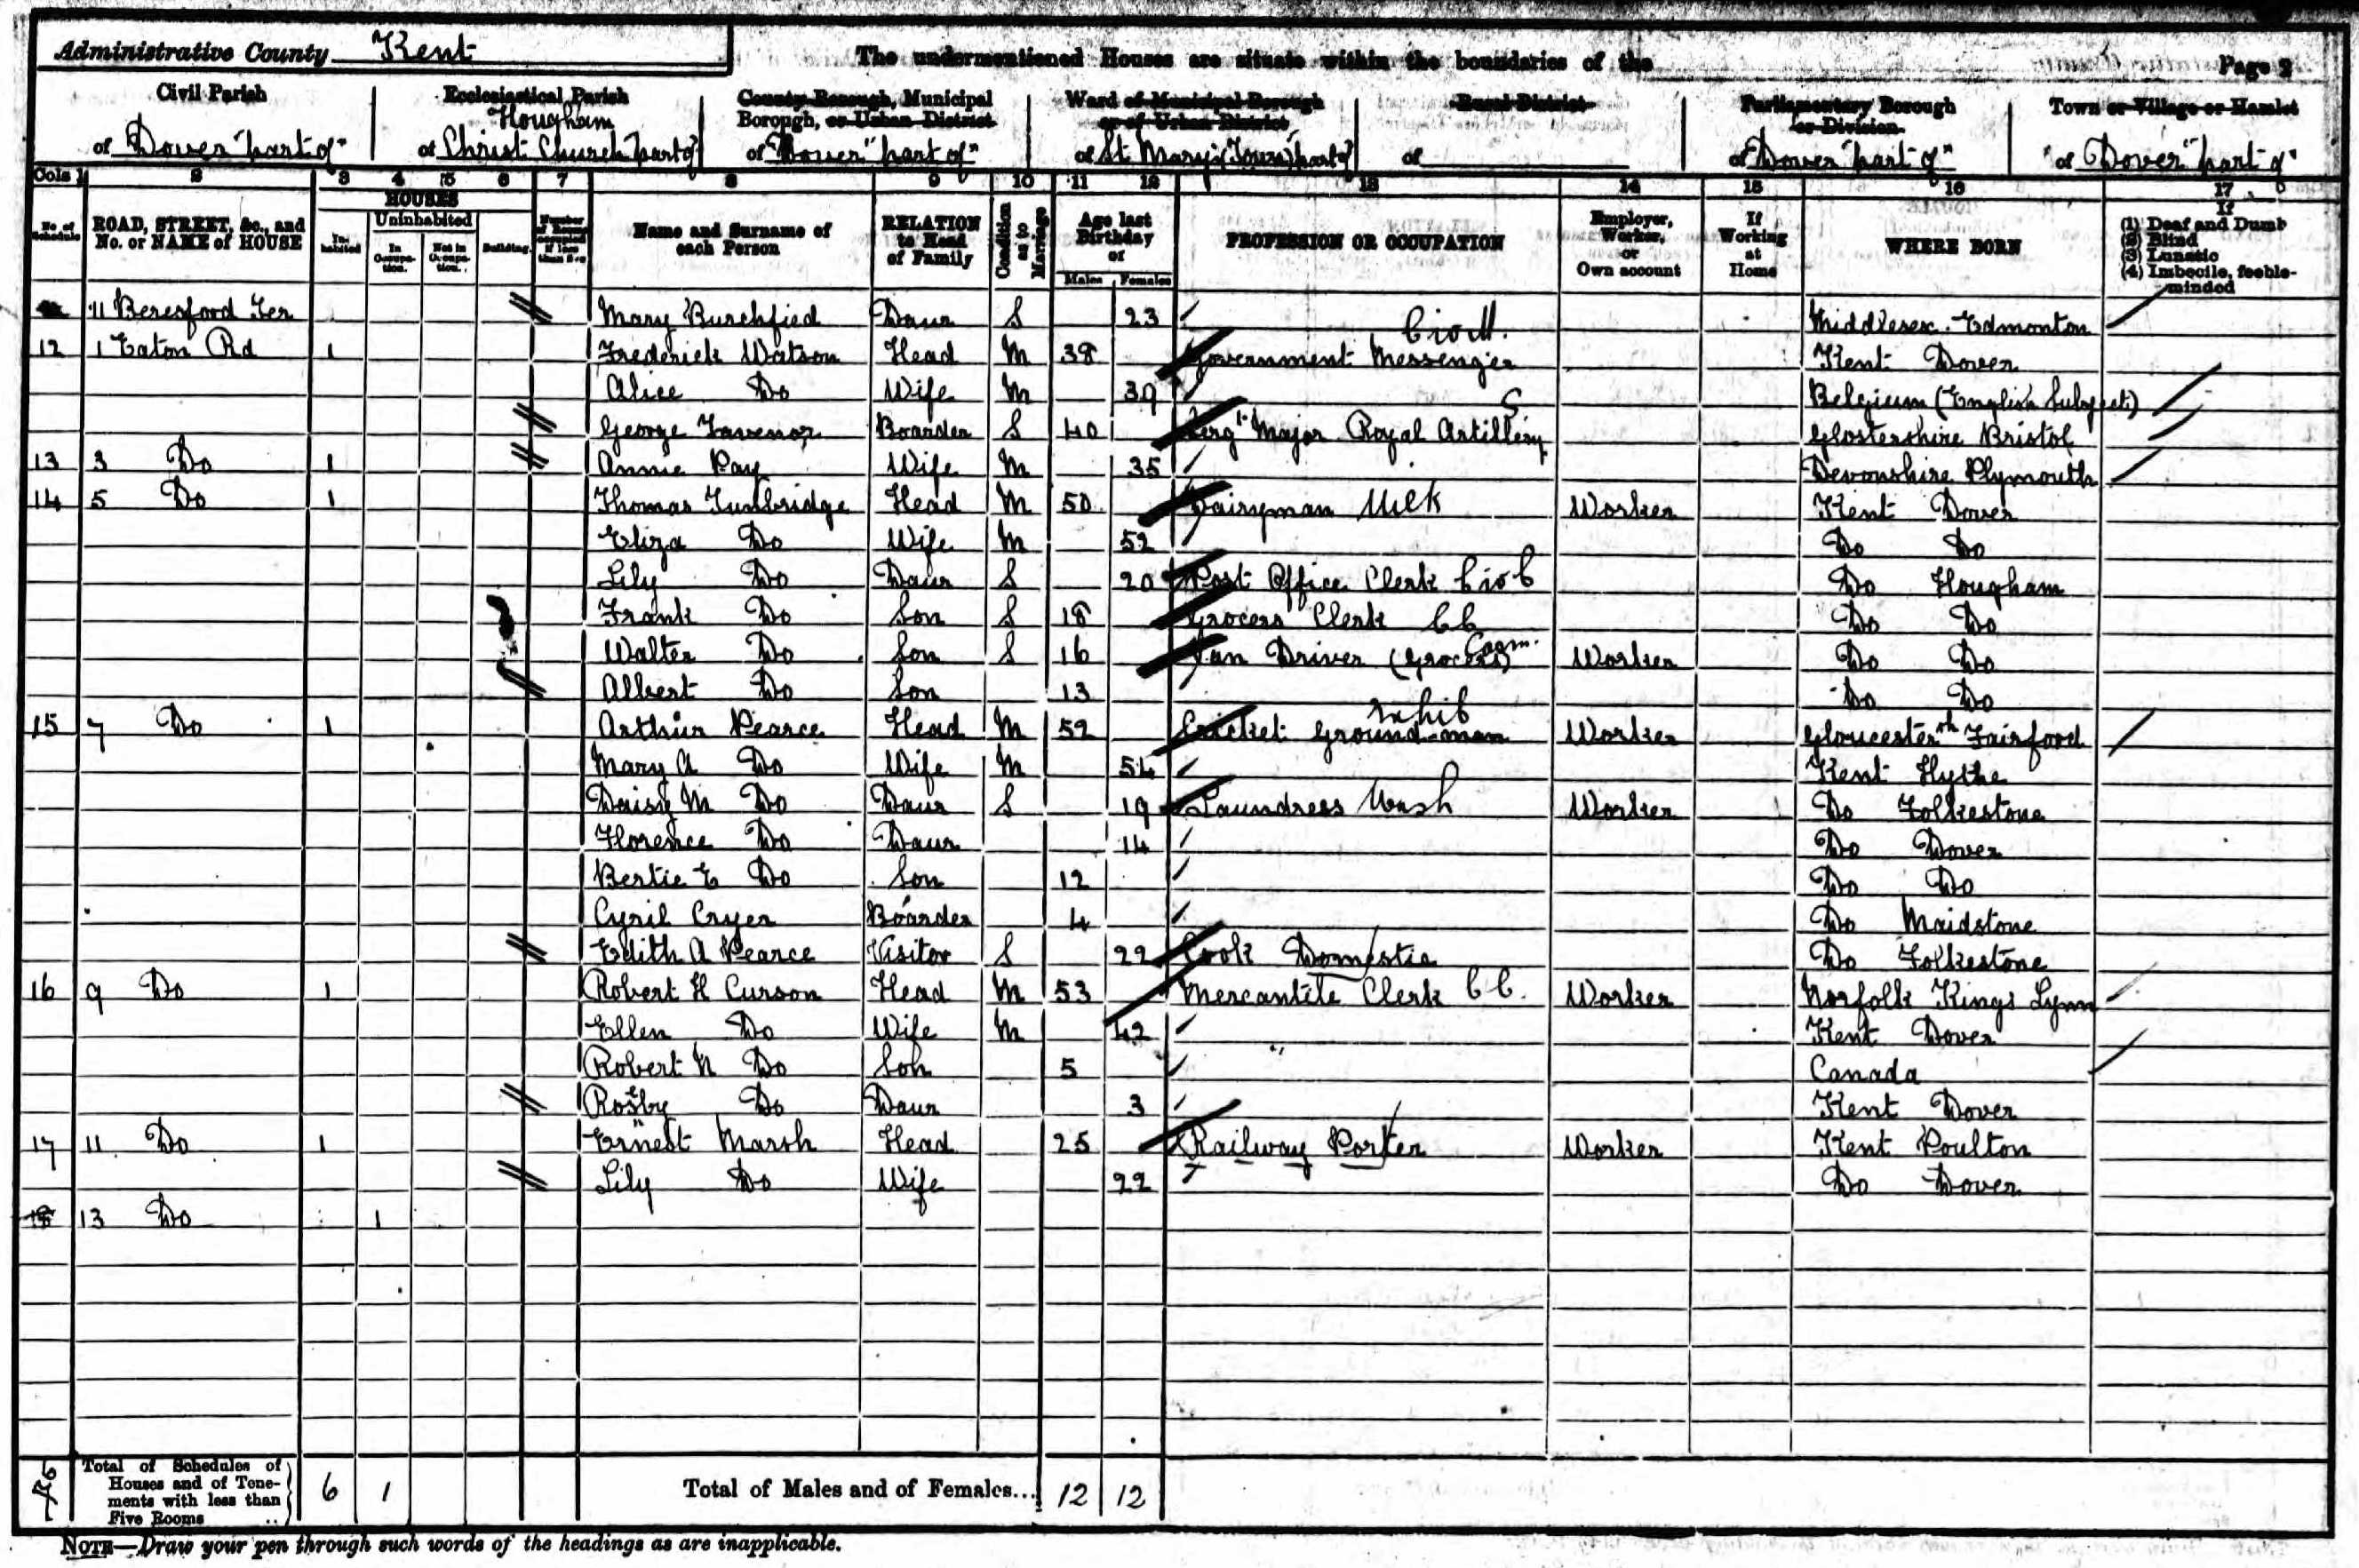 Administrative County Kent
The undermentioned Houses are situate within the boundaries of the
Page 2
Civil Parish
of Dover "part of"
Ecclesiastical Parish
Hougham
of Christ Church "part of"
County Borough, Municipal
Borough, or Urban District
of Dover "part of"
Ward of Municipal Borough
or of Urban District
of St Mary's (Town) "part of"
Rural District
of
Parliamentary Borough
or Division
of Dover "part of"
Town or Village or Hamlet
of Dover "part of"
Cols 1 2 3 4 5 6 7 8 9 10 11 12 13 14 15 16 17
No. of Schedule
ROAD, STREET, &c., and
No. or NAME of HOUSE
HOUSES
Inhabited
Uninhabited
In Occupation.
Not in Occupation.
Building
Number of Rooms occupied if less than five
Name and Surname of
each Person
RELATION
to Head
of Family
Condition as to Marriage
Age last
Birthday
of
Males Females
PROFESSION OR OCCUPATION
Employer,
Worker,
or
Own account
If
Working
at
Home
WHERE BORN
If
(1) Deaf and Dumb
(2) Blind
(3) Lunatic
(4) Imbecile, feeble-
minded
11 Beresford Ter Mary Burchfied Daur S 23 Middlesex Edmonton
12 1 Eaton Rd 1 Frederick Watson Head M 38 Government Messenger Kent Dover
Alice Do Wife M 39 Belgium (English Subject)
George Tavenor Boarder S 40 Sergt Major Royal Artillery S Glostershire Bristol
13 3 Do 1 Annie Pay Wife M 35 Devonshire Plymouth
14 5 Do 1 Thomas Tunbridge Head M 50 Dairyman Milk Worker Kent Dover
Eliza Do Wife M 52 Do Do
Lily Do Daur S 20 Post Office Clerk Do Hougham
Frank Do Son S 18 Grocers Clerk CC Do Do
Walter Do Son S 16 Van Driver (Grocers) Carm. Worker Do Do
Albert Do Son 13 Do Do
15 7 Do 1 Arthur Pearce Head M 52 Cricket Ground-man Exhib Worker Gloucestersh Fairford
Mary A Do Wife M 54 Kent Hythe
Daisy M Do Daur S 19 Laundress Wash Worker Do Folkestone
Florence Do Daur 14 Do Dover
Bertie E Do Son 12 Do Do
Cyril Cryer Boarder 4 Do Maidstone
Edith A Pearce Visitor S 22 Cook Domestic Do Folkestone
16 9 Do 1 Robert H Curson Head M 53 Mercantile Clerk CC. Worker Norfolk Kings Lynn
Ellen Do Wife M 42 Kent Dover
Robert N Do Son 5 Canada
Do Daur 3 Kent Dover
17 11 Do 1 Ernest Marsh Head 25 Railway Porter Worker Kent Poulton
Lily Do Wife 22 Do Dover
18 13 Do 1
Total of Schedules of
Houses and of Tene-
ments with less than
Five Rooms
6 1
Total of Males and of Females... 12 12
NOTE—Draw your pen through such words of the headings as are inapplicable.